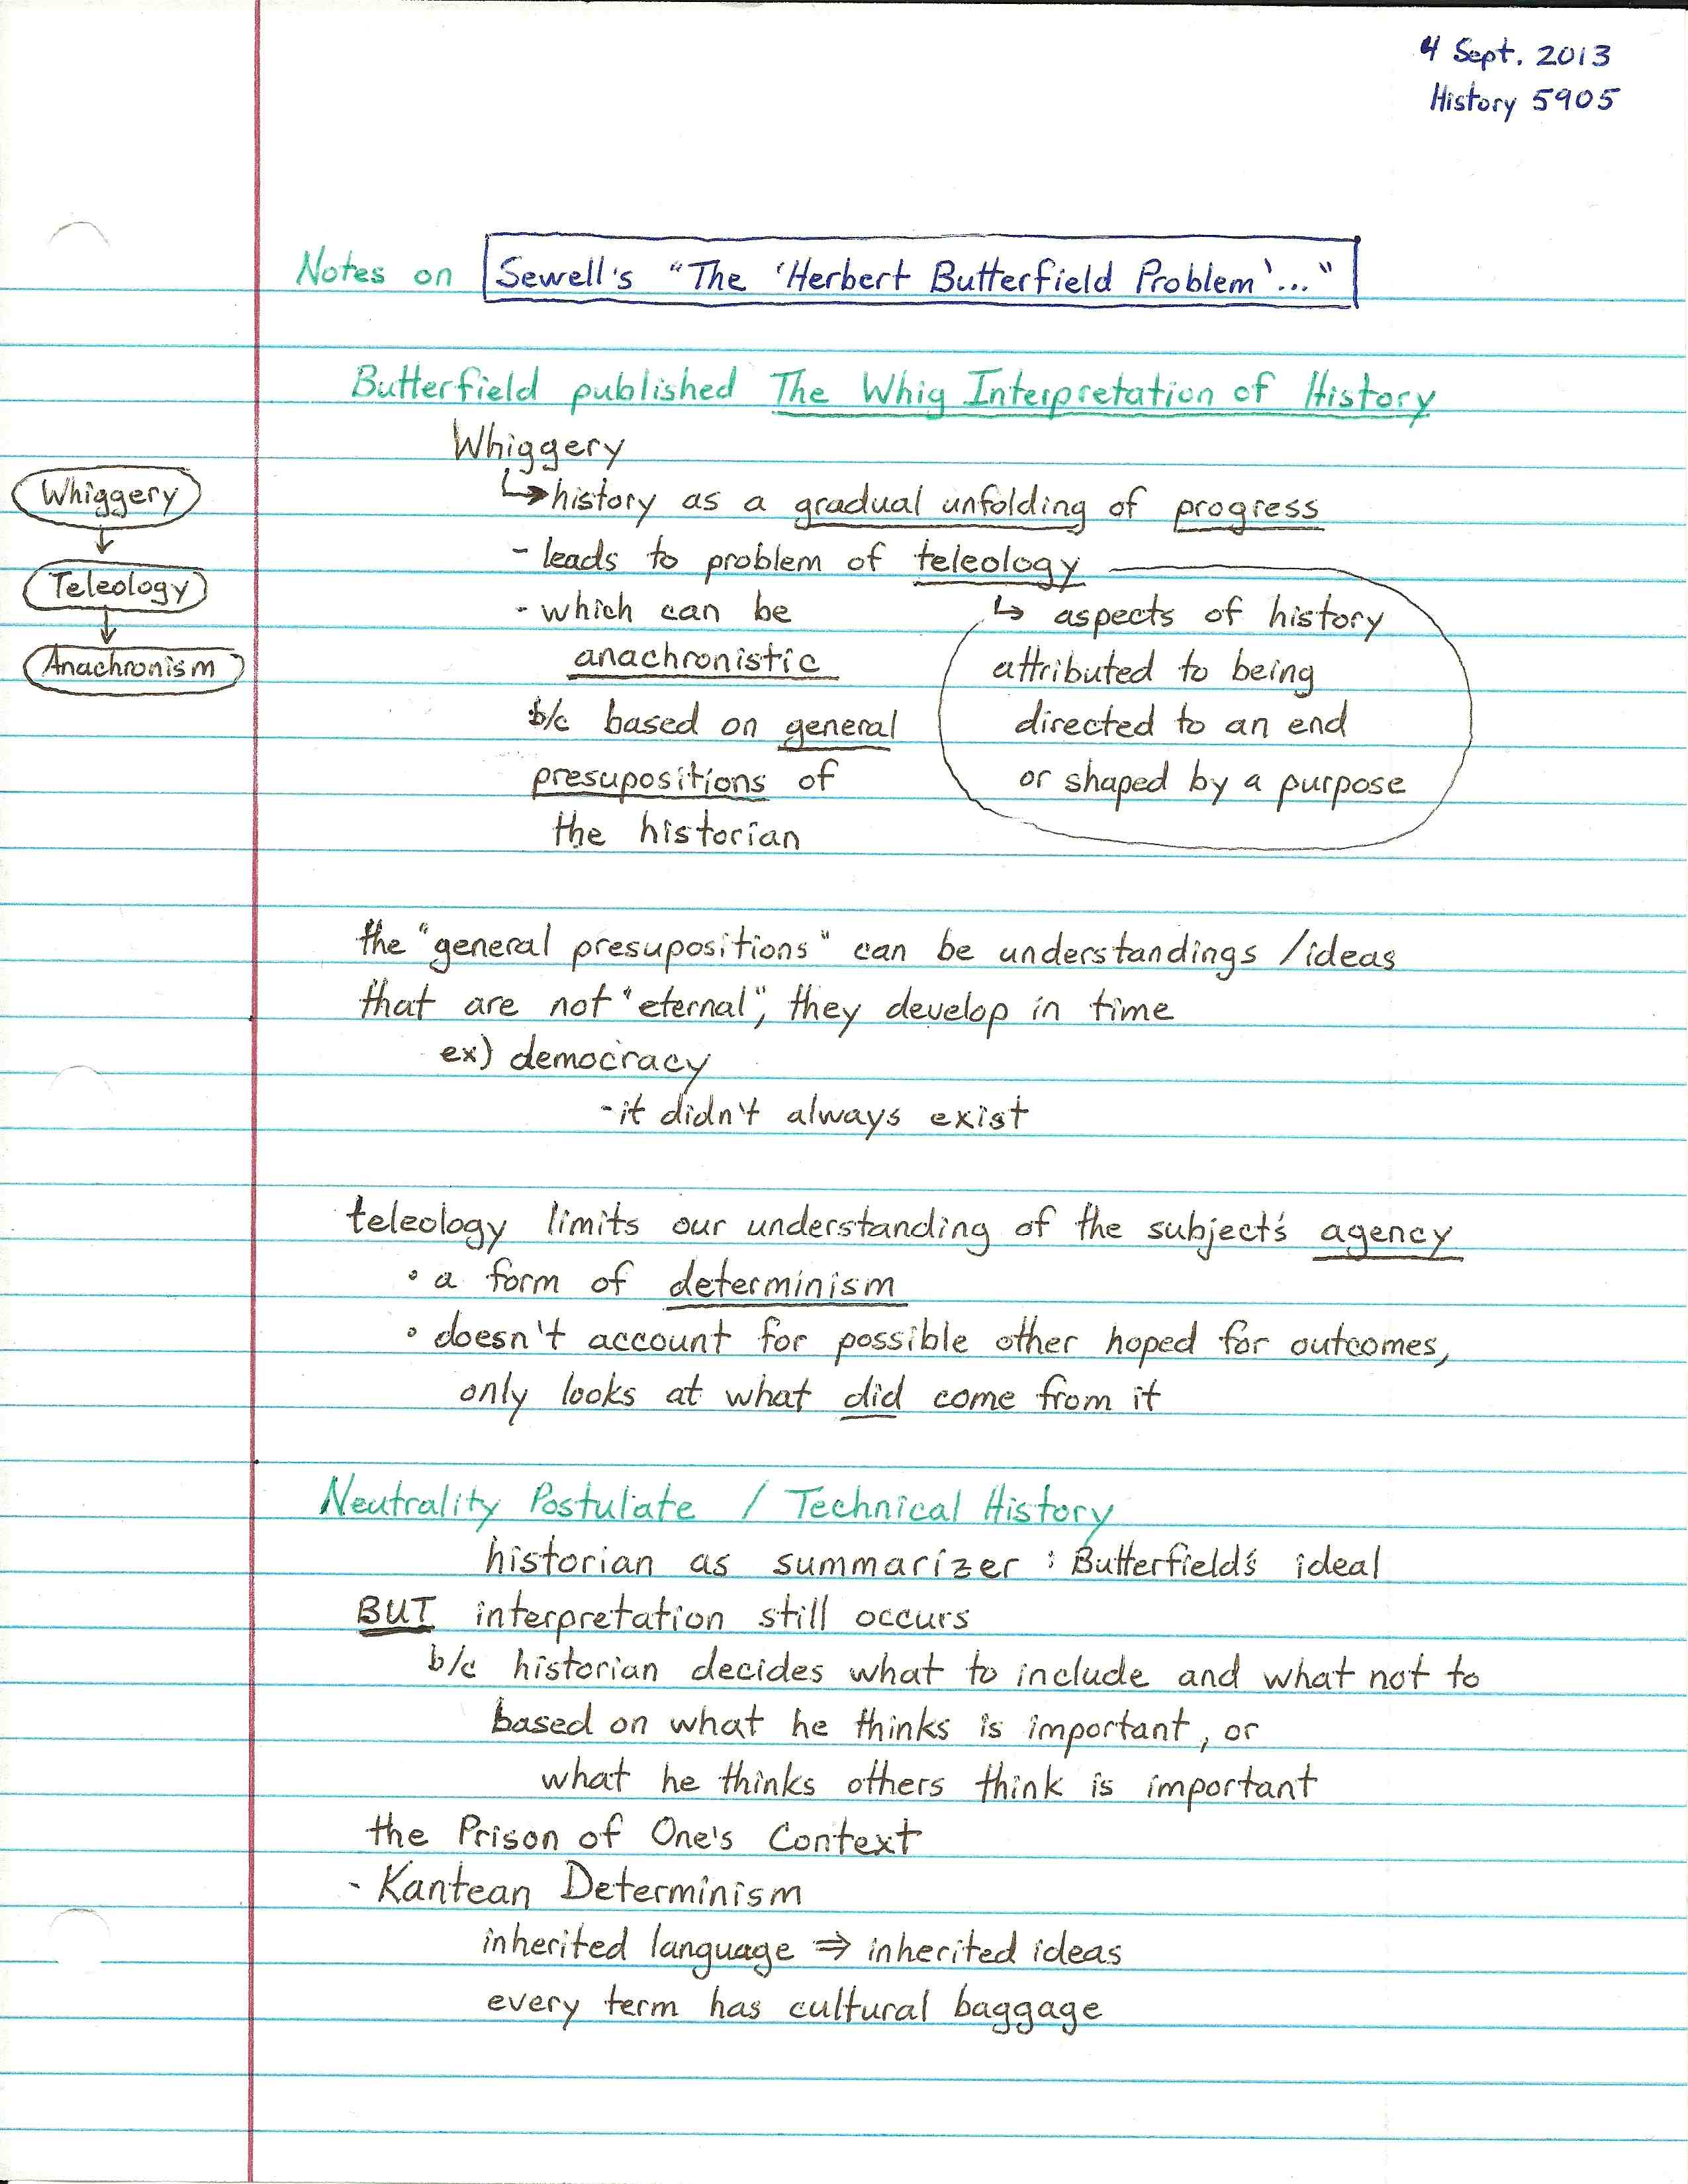 4 Sept. 2013
History 5905
Notes on Sewell's "The 'Herbert Butterfield Problem'..."
Butterfield published The Whig Interpretation of History
Whiggery
↳ history as a gradual unfolding of progress
- leads to problem of teleology
- which can be
anachronistic
b/c based on general
presupositions of
the historian
↳ aspects of history
attributed to being
directed to an end
or shaped by a purpose
Whiggery
↓
Teleology
↓
Anachronism
the "general presupositions" can be understandings / ideas
that are not "eternal", they develop in time
ex) democracy
- it didn't always exist
teleology limits our understanding of the subject's agency
• a form of determinism
• doesn't account for possible other hoped for outcomes,
only looks at what did come from it
Neutrality Postulate / Technical History
historian as summarizer : Butterfield's ideal
BUT interpretation still occurs
b/c historian decides what to include and what not to
based on what he thinks is important, or
what he thinks others think is important
the Prison of One's Context
- Kantean Determinism
inherited language ⇒ inherited ideas
every term has cultural baggage